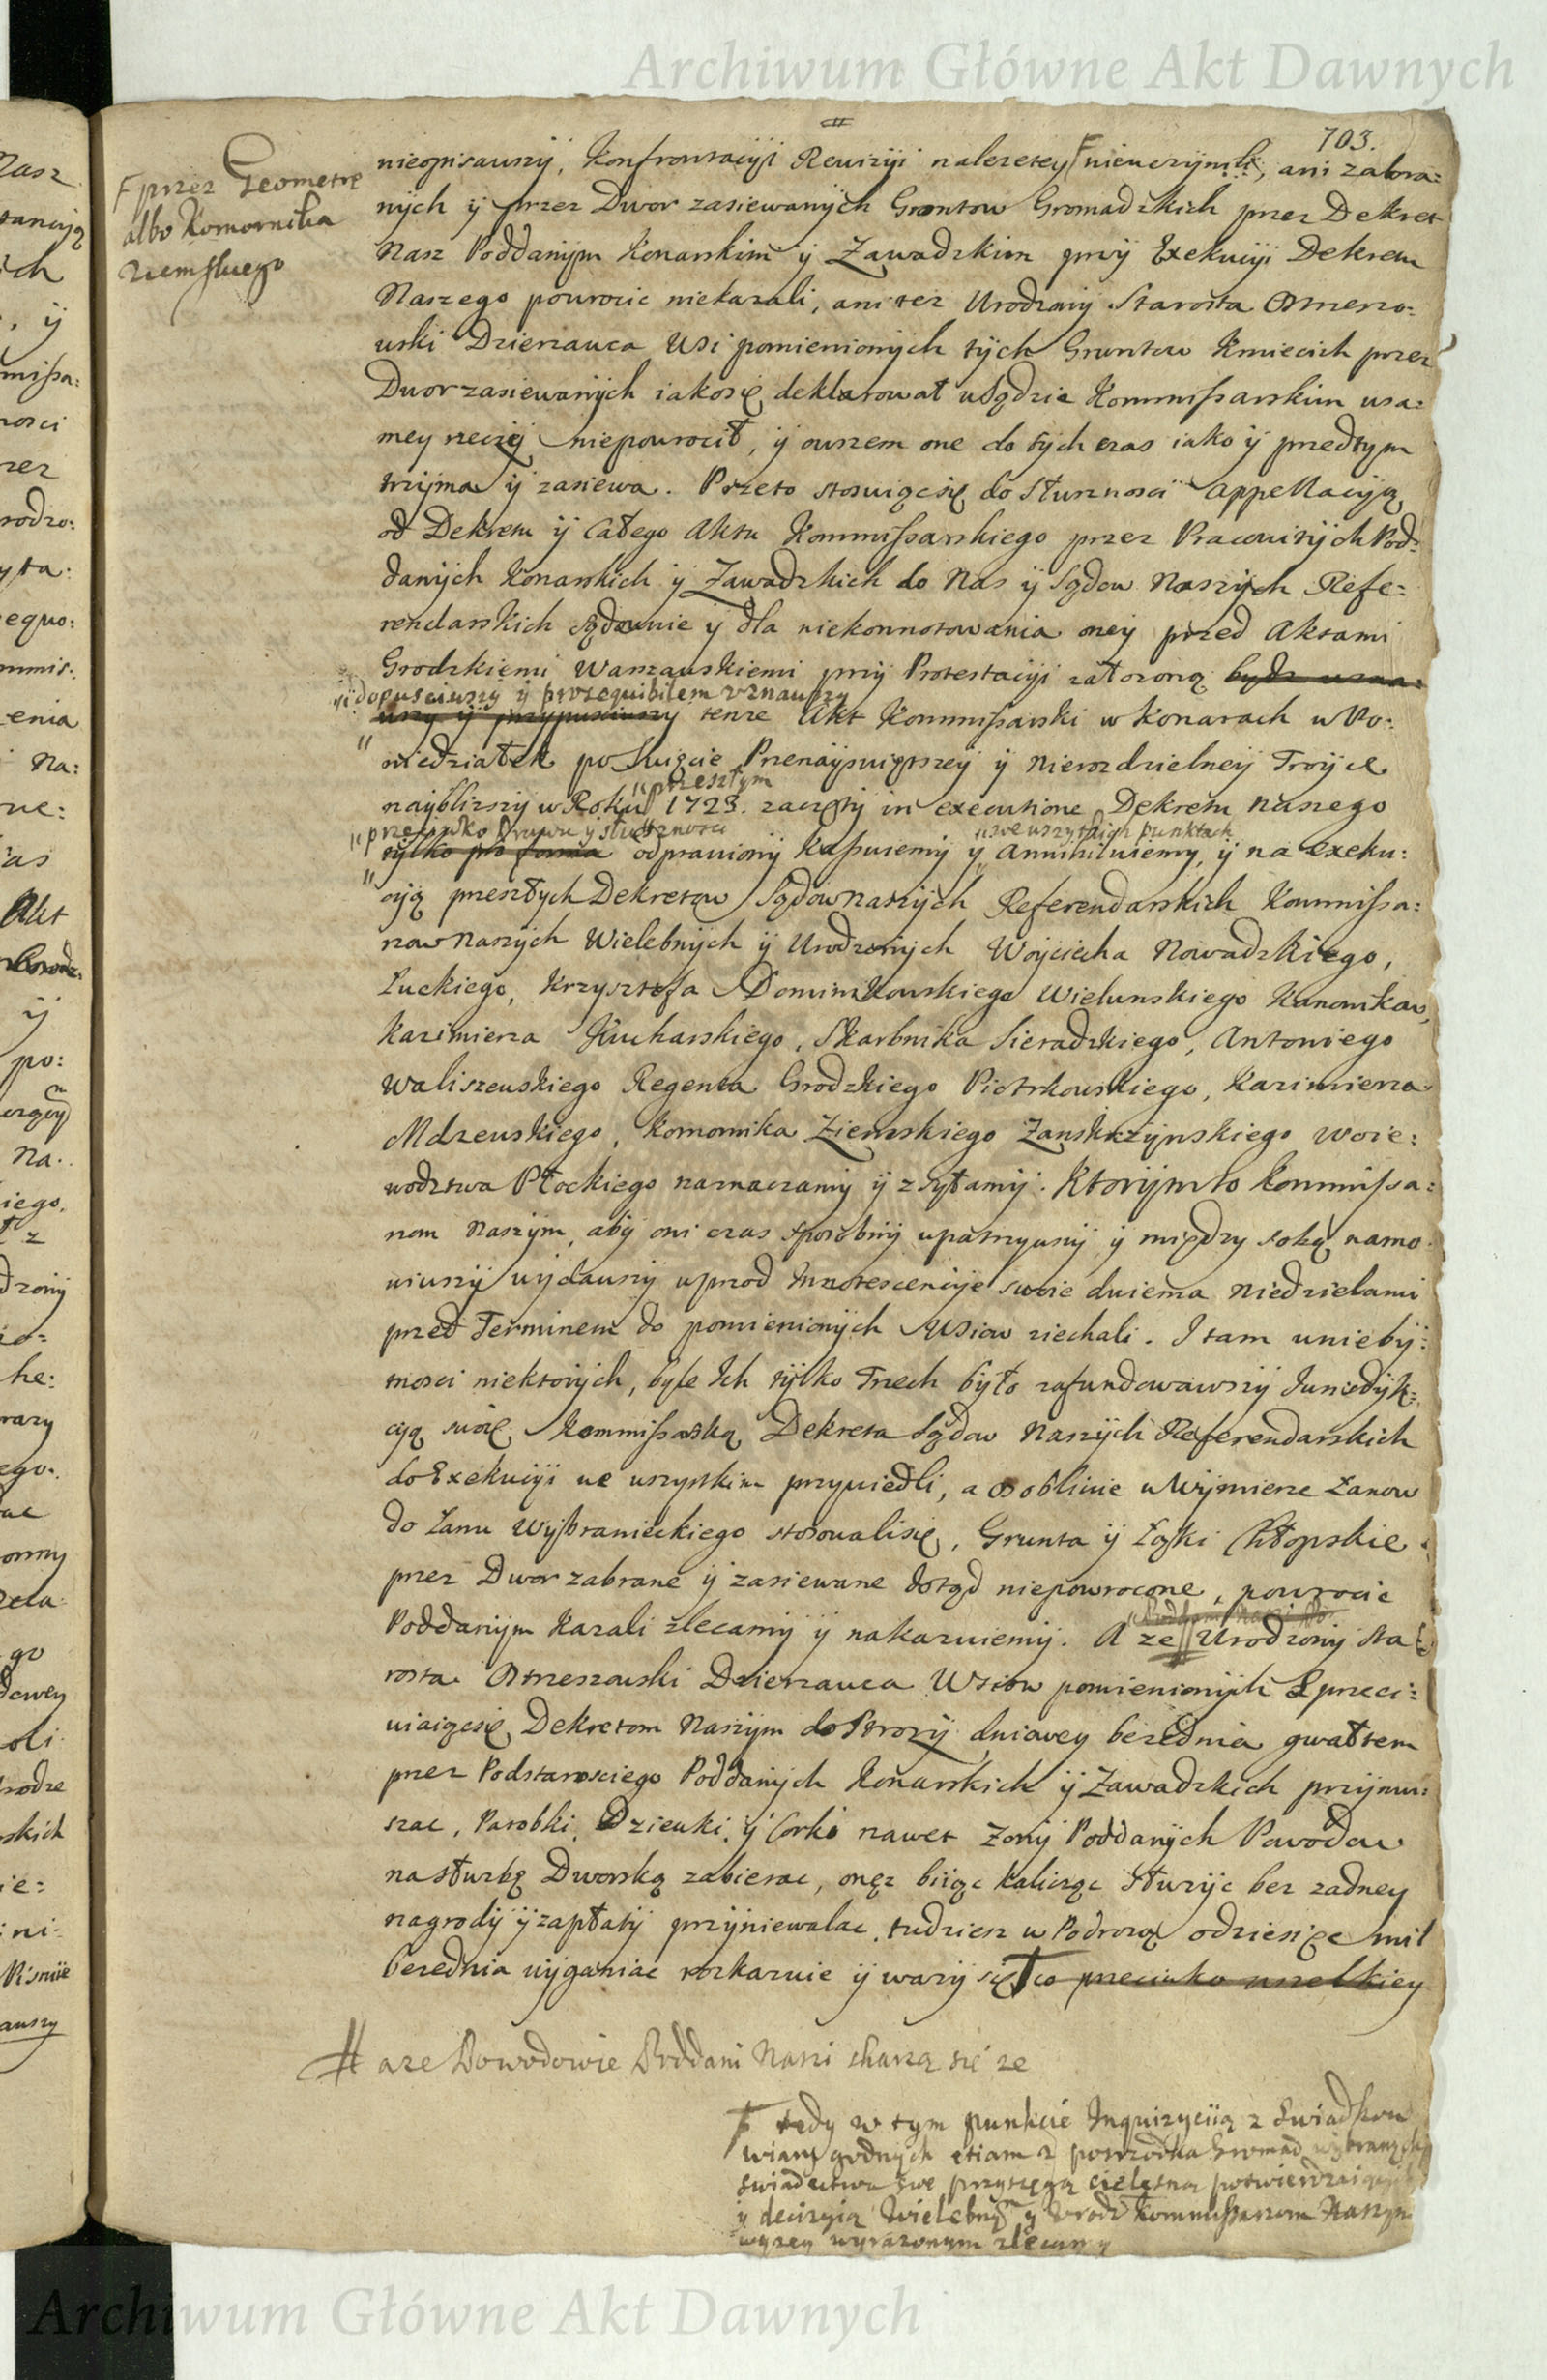 Archiwum Główne Akt Dawnych
703.
F przez Geometrę
albo Komornika
Ziemskiego
nieopisawszÿ, Konfrontacÿi Rewizÿi nalezÿtey F nieuczÿnili, ani zabra:
nÿch ÿ przez Dwor zasiewanÿch Grontow Gromadzkich przez Dekret
Nasz Poddanÿm Konarskim ÿ Zawadzkim przÿ Exekucÿi Dekretu
Naszego powrocic niekazali, ani tez Urodzonÿ Starosta Ostrzeszo:
wski Dzierzawca Wsi pomienionÿch tÿch Gruntow Kmiecich przez
Dwor zasiewanÿch iakosię deklarował wSądzie Kommissarskim wsa:
mey rzeczÿ niepowrocił, ÿ owszem one do tÿch czas iako ÿ przedtym
trzÿma ÿ zasiewa. Przeto stosuiącsię do Słusznosci Appellacÿą
od Dekretu ÿ Całego Aktu Kommissarskiego przez Pracowitÿch Pod:
danÿch Konarskich ÿ Zawadzkich do Nas ÿ Sądow Naszÿch Refe:
rendarskich Sądownie ÿ dla niekonnotowania oneÿ przed Aktami
Grodzkiemi Warszawskiemi przÿ Protestacÿi załozoną bydz uzna:
dopusciwszy ÿ prosequibilem uznawszy
wszy ÿ przypusciwszy tenze Akt Kommissarski w Konarach w Po:
niedziałek po Swięcie Przenaÿswiętszeÿ ÿ Nierozdzielneÿ Troÿce
przeszłym
naÿblizszÿ w Roku 1723. zaczętÿ in executione Dekretu Naszego
przeciwko Prawu y słusznosci
we wszytkich punktach
tylko pro forma odprawionÿ Kassuiemÿ ÿ Annihiluiemy, ÿ na Exeku:
cÿą przeszłych Dekretow Sądow Naszÿch Referendarskich Kommissa:
rzow Naszÿch Wielebnÿch ÿ Urodzonÿch Woÿciecha Nowadzkiego,
Łuckiego, Krzysztofa Dominikowskiego Wielunskiego Kanonikow,
Kazimierza Kucharskiego, Skarbnika Sieradzkiego, Antoniego
Waliszewskiego Regenta Grodzkiego Piotrkowskiego, Kazimierza
Mdzewskiego, Komornika Ziemskiego Zawskrzÿnskiego Woie:
wodztwa Płockiego naznaczamÿ ÿ zsÿłamÿ. Ktorÿmto Kommissa:
rzom Naszÿm, abÿ oni czas sposobnÿ upatrzÿwszÿ ÿ między sobą namo:
wiwszÿ wÿdawszÿ wprzod Innotescencÿe swoie dwiema Niedzielami
przed Terminem do pomienionÿch Wsiow ziechali. I tam wniebÿ:
tnosci niektorÿch, byle Ich tÿlko Trzech bÿło zafundowawszÿ Jurisdÿk:
cÿą swoię Kommissarską Dekreta Sądow Naszÿch Referendarskich
do Exekucÿi we wszystkim przywiedli, a osobliwie wWÿmierze Łanow
do Łanu Wÿbranieckiego stosowalisię, Grunta ÿ Łąki Chłopskie
przez Dwor zabrane ÿ zasiewane dotąd niepowrocone, powrocic
Poddanÿm Kazali zlecamÿ ÿ nakazuiemÿ. A ze Urodzonÿ Sta
rosta Ostrzeszowski Dzierzawca Wsiow pomienionÿch Sprzeci:
wiaiącsię Dekretom Naszÿm do Strozÿ dniowey bezednia gwałtem
przez Podstarosciego Poddanÿch Konarskich ÿ Zawadzkich przÿmu:
szac, Parobki, Dziewki, ÿ Corki nawet Zonÿ Poddanÿch Powodow
na słuzbę Dworską zabierac, onęz biiąc kalicząc słuzÿc bez zadney
nagrodÿ ÿ zapłatÿ przÿniewalac, tudziesz w Podrozą odziesięc mil
bezednia wÿganiac rozkazuie ÿ wazÿ się F co przeciwko wszelkiey
# aze Powodowie Poddani Nasi skarzą się ze
F tedy w tym punkcie Inquizycÿią z Swiadkow
wiary godnych etiam z posrzodka Gromad wybranych
swiadectwa swe przysięgą cielesną potwierdzaiących
y decizyią Wielebnym y Urodz Kommissarzom Naszym
wyzey wyrazonym zlecamy
Archiwum Główne Akt Dawnych